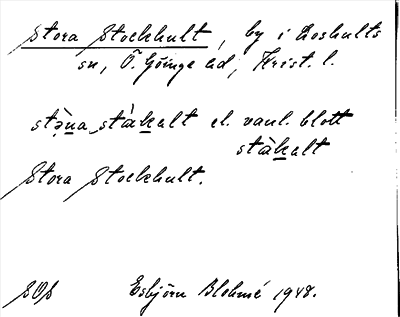 Stora Stockhult, by i Loshults
sn, Ö. Göinge hd, Krist. l.
stə̀na stàkalt el. vanl. blott
stàkalt
Stora Stockhult.
SOS Esbjörn Blohmé 1948.